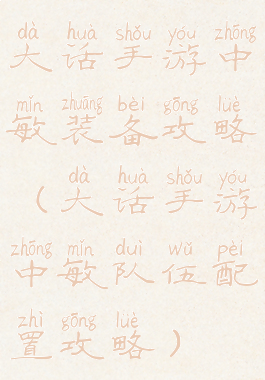 dà huà shǒu yóu zhōng
大话手游中
mǐn zhuāng bèi gōng lüè
敏装备攻略
dà huà shǒu yóu
（大话手游
zhōng mǐn duì wǔ pèi
中敏队伍配
zhì gōng lüè
置攻略）